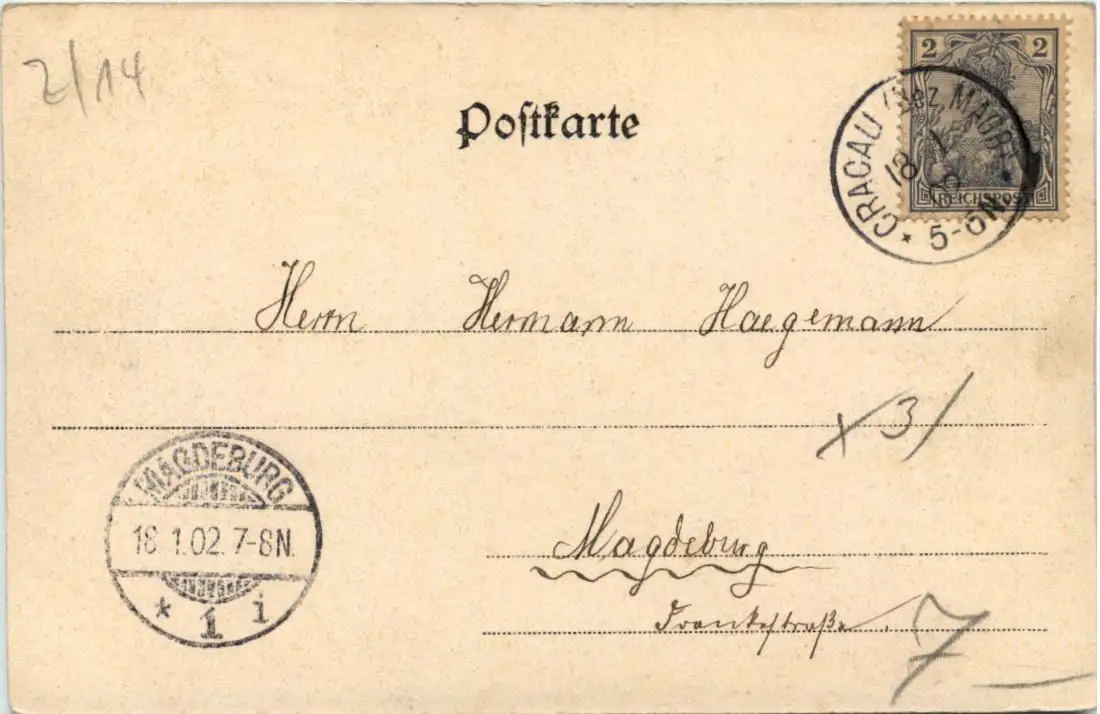 2/14
Postkarte
2 2
REICHSPOST
CRACAU (Bez. MAGDE
18 1
5-6N
Herrn Hermann Haegemann
x 3/
MAGDEBURG
18.1.02. 7-8N.
* 1 i
Magdeburg
Frankestraße. 7